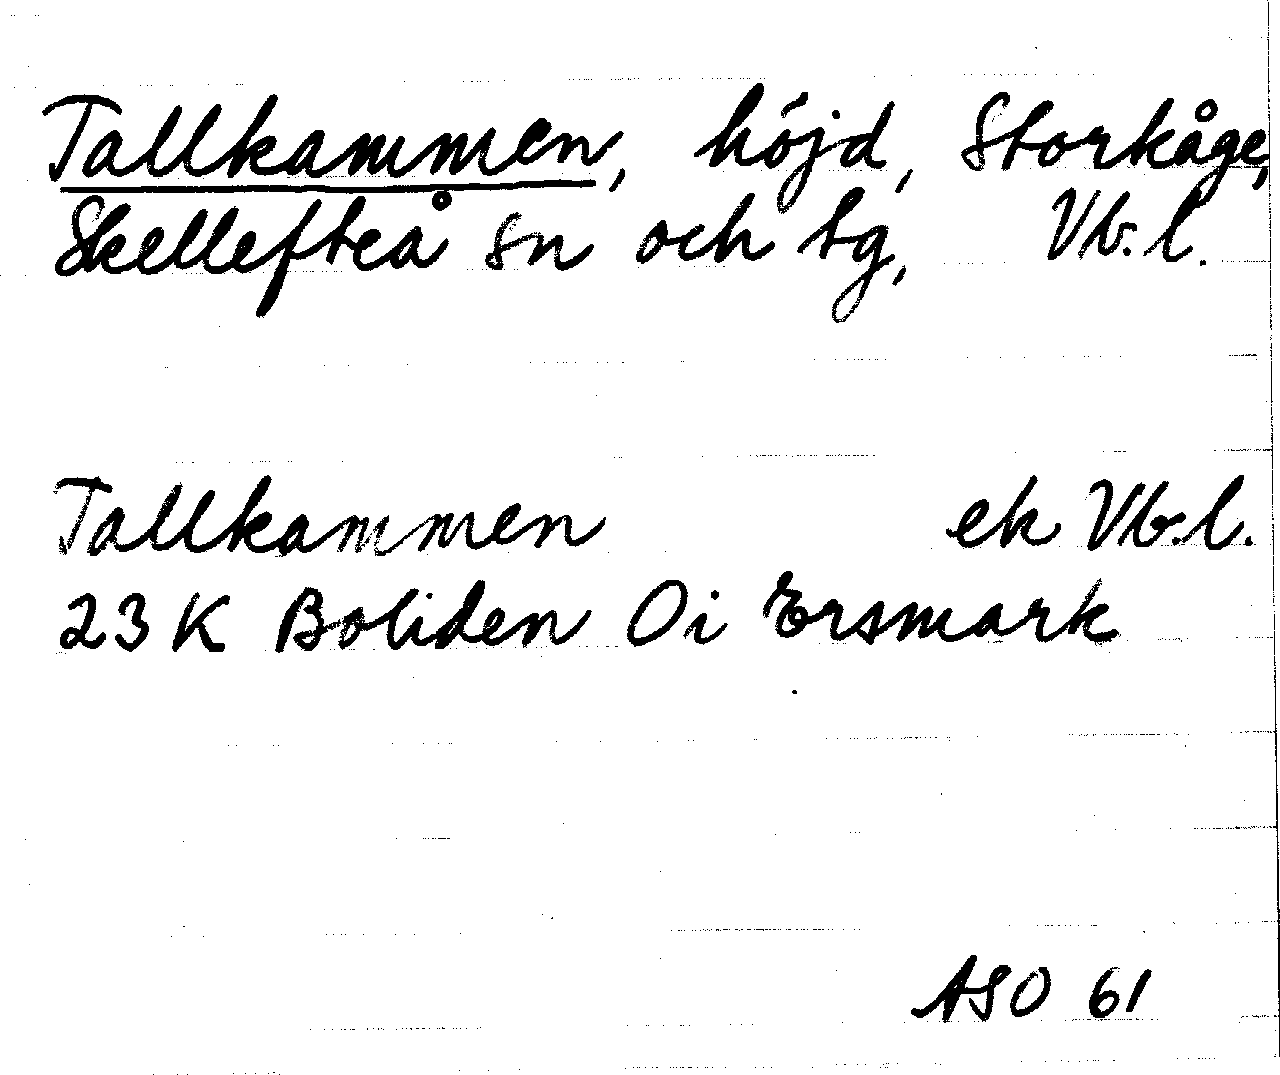 Tallkammen, höjd, Storkåge,
Skellefteå sn och tg, Vb.l.
Tallkammen ek Vb.l.
23 K Boliden Oi Ersmark
ASO 61